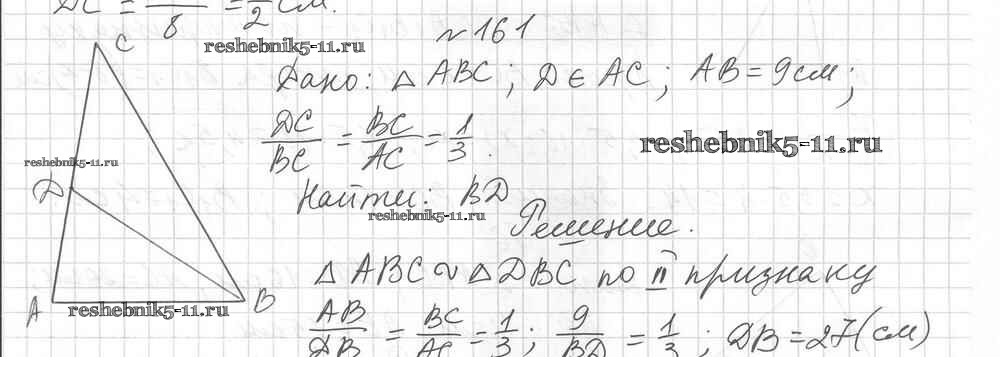 DC = — = — см.
8 2
№161
C
reshebnik5-11.ru
Дано: △ ABC; D ∈ AC; AB = 9 см;
DC/BC = BC/AC = 1/3.
reshebnik5-11.ru
reshebnik5-11.ru
D
Найти: BD
reshebnik5-11.ru
Решение.
△ ABC ~ △ DBC по II признаку
A
B
reshebnik5-11.ru
AB/DB = BC/AC = 1/3; 9/BD = 1/3; DB = 27(см)